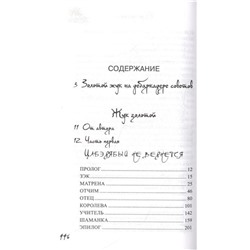 СОДЕРЖАНИЕ
3 Золотой жук на дебаркадере советов
Жук золотой
11 От автора
12 Часть первая
ЦАБЭРЯБЫЙ НЕ ВЕРНЕТСЯ
ПРОЛОГ 12
ЗЭК 15
МАТРЕНА 25
ОТЧИМ 44
ОТЕЦ 80
КОРОЛЕВА 99
УЧИТЕЛЬ 142
ШАМАНКА 159
ЭПИЛОГ 201
446